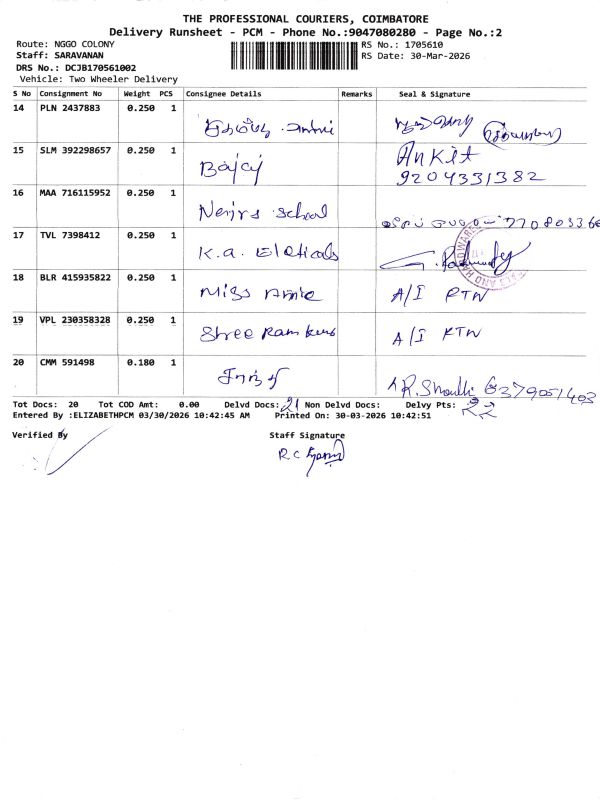 THE PROFESSIONAL COURIERS, COIMBATORE
Delivery Runsheet - PCM - Phone No.:9047080280 - Page No.:2
Route: NGGO COLONY RS No.: 1705610
Staff: SARAVANAN RS Date: 30-Mar-2026
DRS No.: DCJB170561002
Vehicle: Two Wheeler Delivery
S No Consignment No Weight PCS Consignee Details Remarks Seal & Signature
14 PLN 2437883 0.250 1
15 SLM 392298657 0.250 1 Bajaj Ankit
9204331382
16 MAA 716115952 0.250 1 School
17 TVL 7398412 0.250 1 K.a.
18 BLR 415935822 0.250 1 Miss A/I RTN
19 VPL 230358328 0.250 1 Shree Ram A/I RTN
20 CMM 591498 0.180 1 6379051403
Tot Docs: 20 Tot COD Amt: 0.00 Delvd Docs: 21 Non Delvd Docs: Delvy Pts: 22
Entered By :ELIZABETHPCM 03/30/2026 10:42:45 AM Printed On: 30-03-2026 10:42:51
Verified By Staff Signature